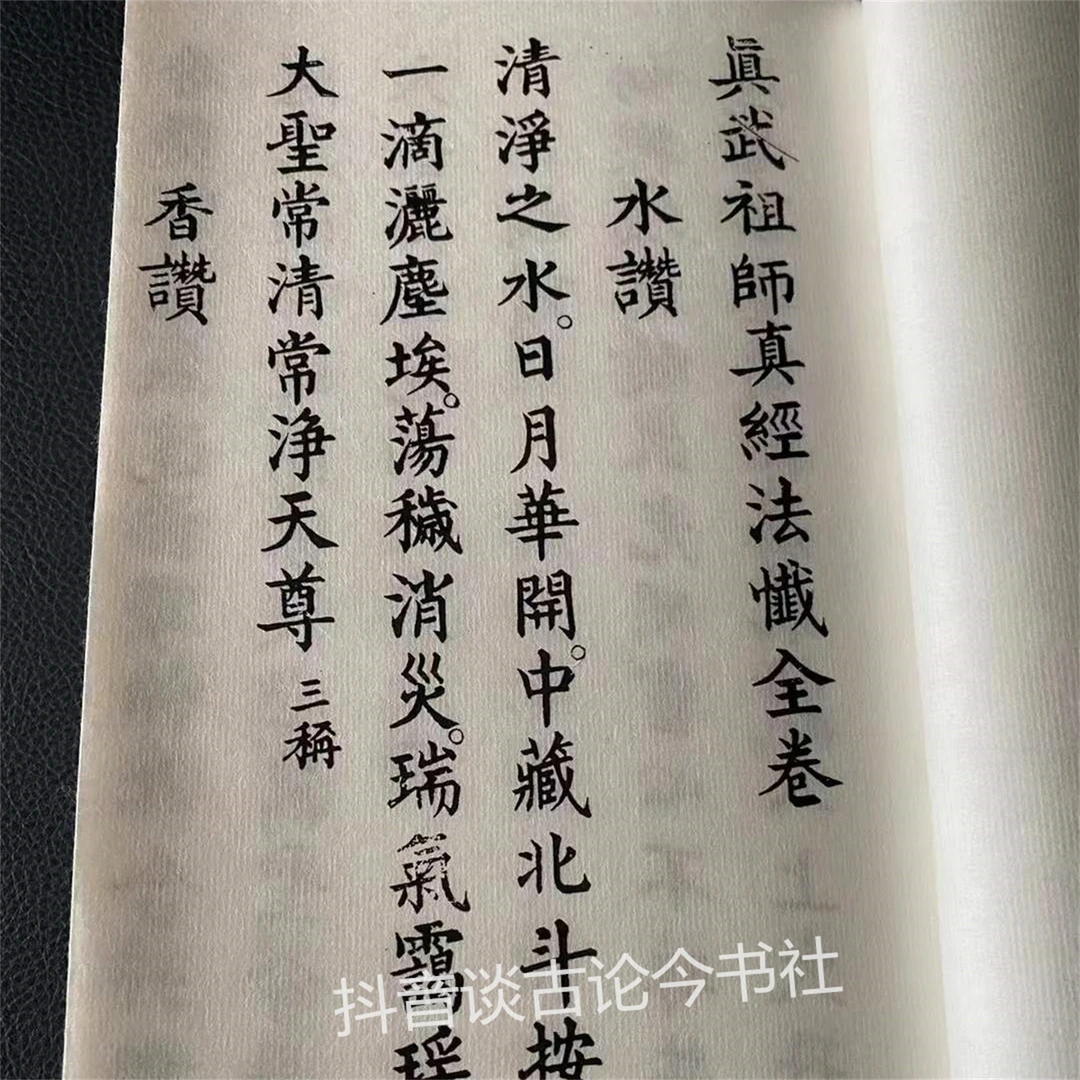 眞武祖師真經法懺全卷
水讚
清淨之水。日月華開。中藏北斗按
一滴灑塵埃。蕩穢消災。瑞氣靄瑶
大聖常清常净天尊 三稱
香讚
抖音谈古论今书社